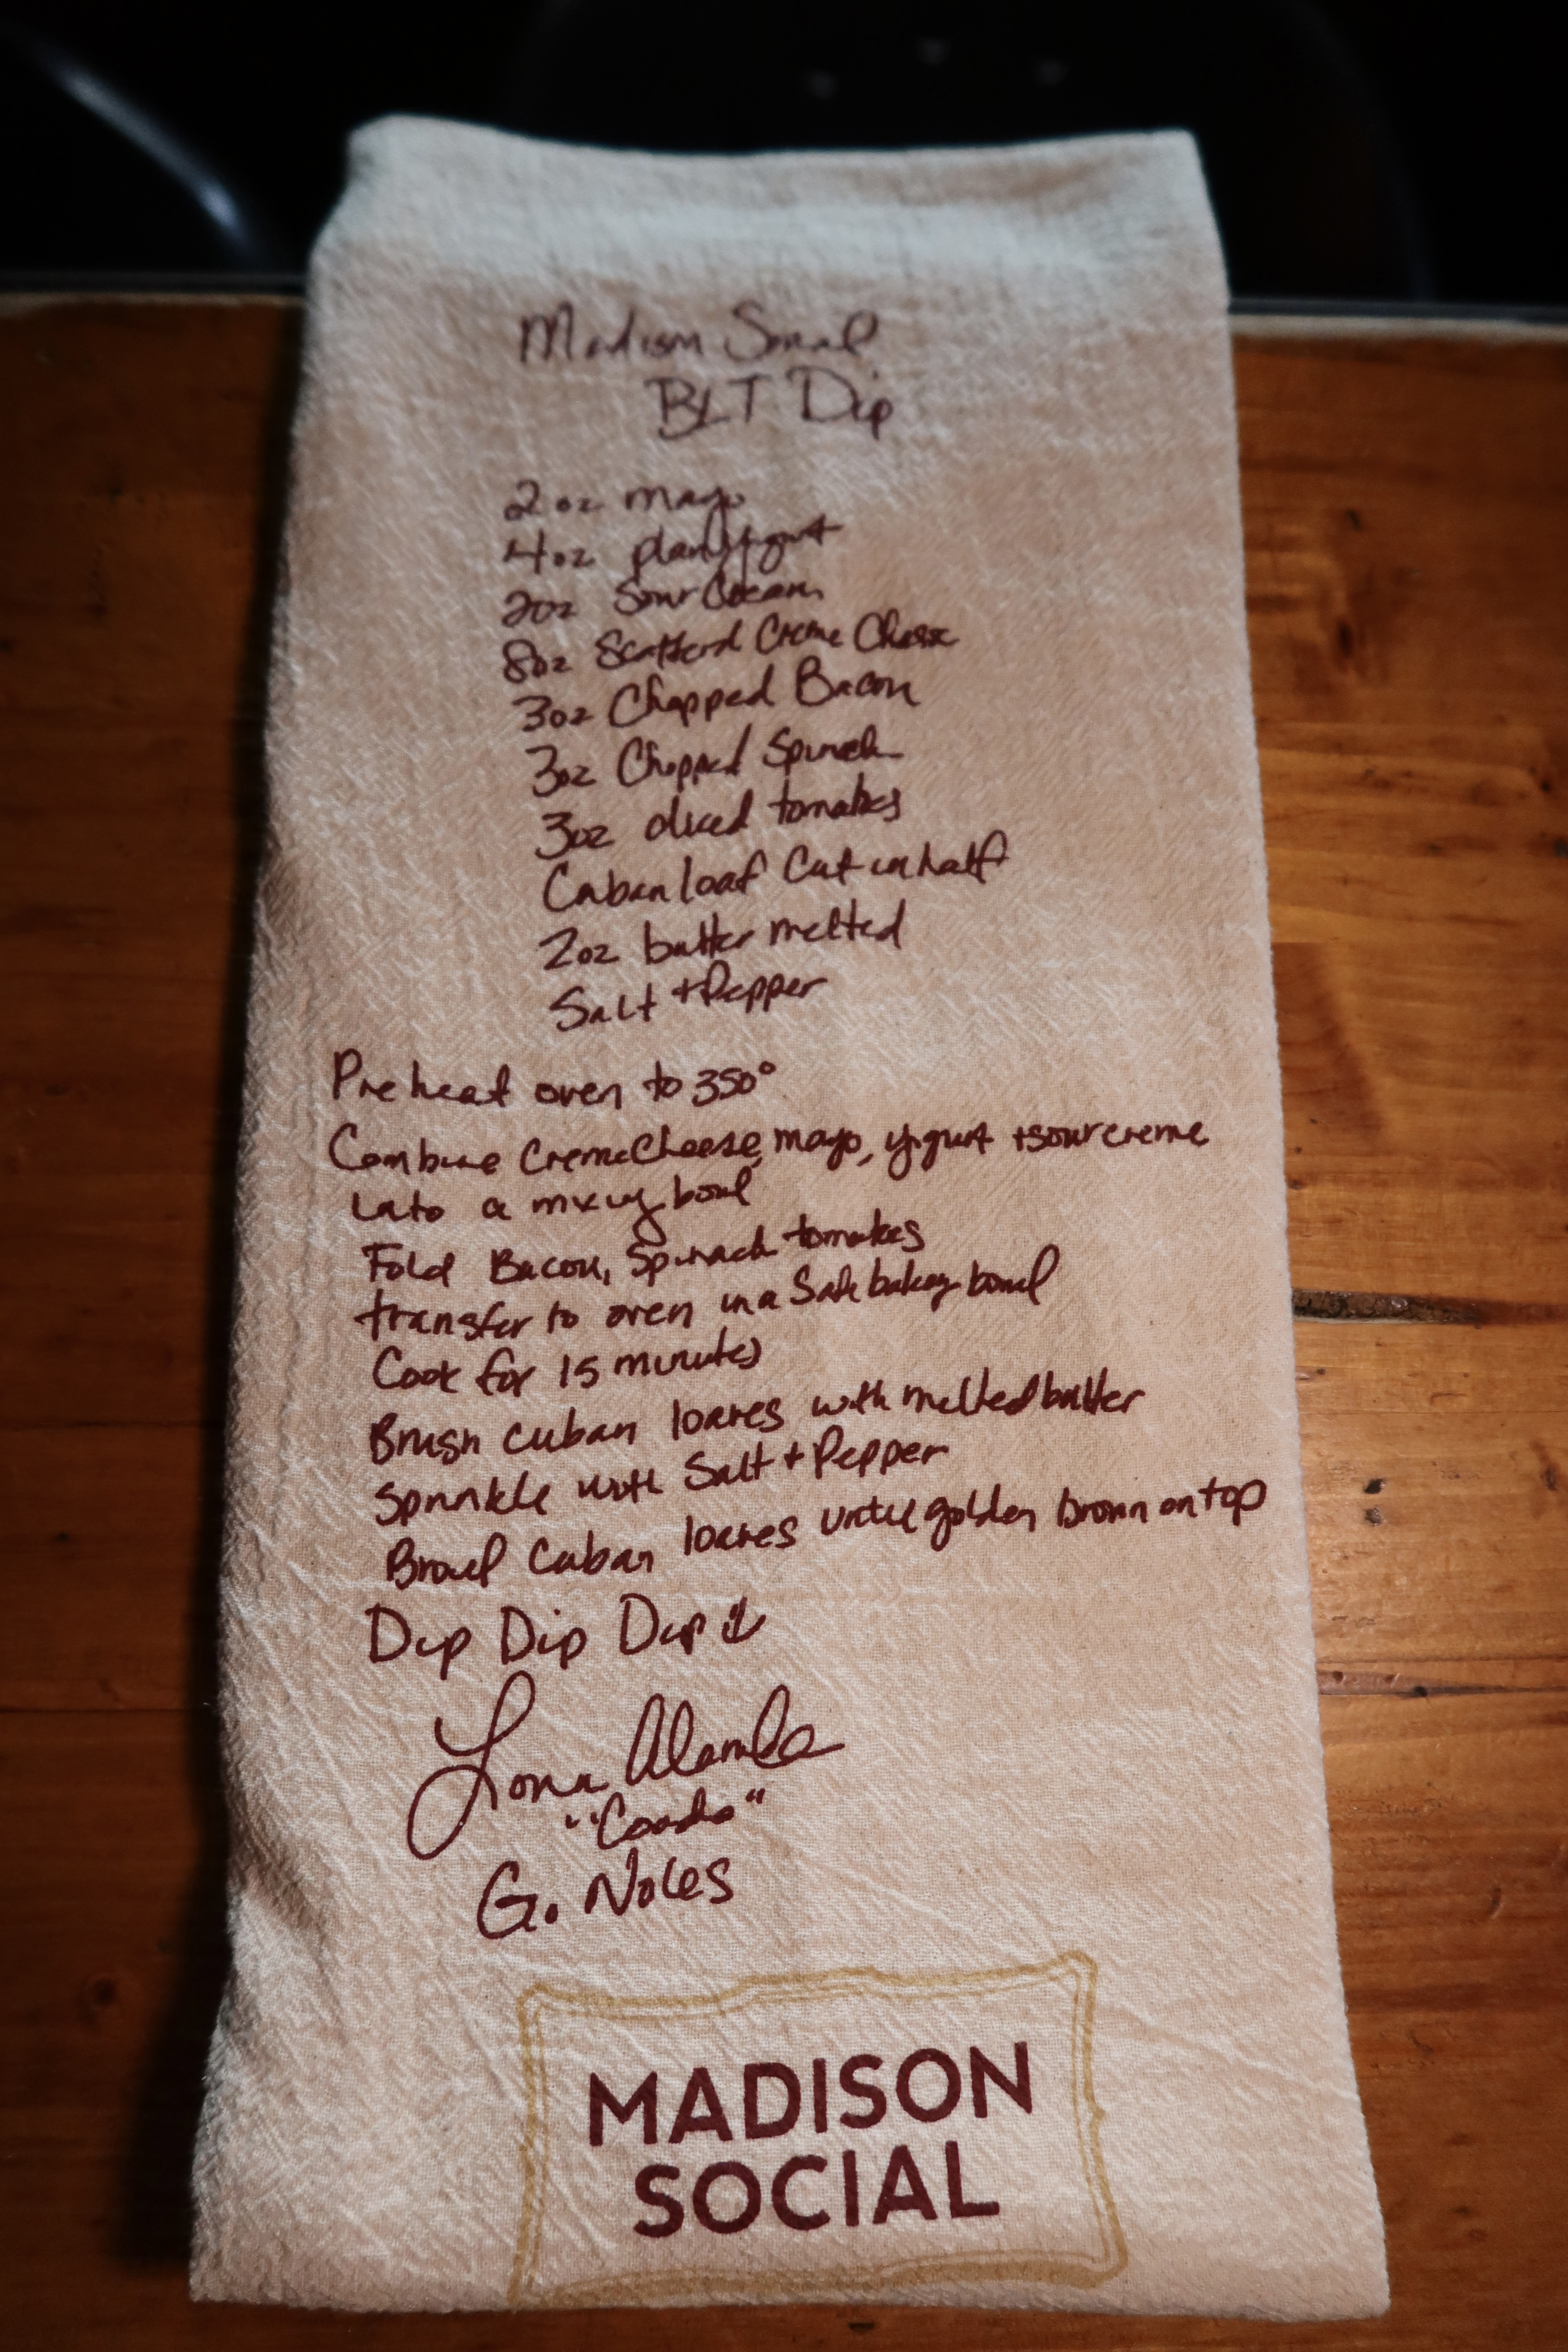 Madison Social
BLT Dip
2oz mayo
4oz plain yogurt
2oz Sour Cream
8oz Creme Cheese
3oz Chopped Bacon
3oz Chopped Spinach
3oz diced tomatoes
Cuban loaf Cut in half
2oz butter melted
Salt + Pepper
Preheat oven to 350°
Combine Creme Cheese, mayo, yogurt + sour creme
into a mixing bowl
Fold Bacon, Spinach tomatoes
transfer to oven in a Safe baking bowl
Cook for 15 minutes
Brush Cuban loaves with melted butter
Sprinkle with Salt + Pepper
Broil Cuban loaves until golden brown on top
Dip Dip Dip
Go Noles
MADISON
SOCIAL